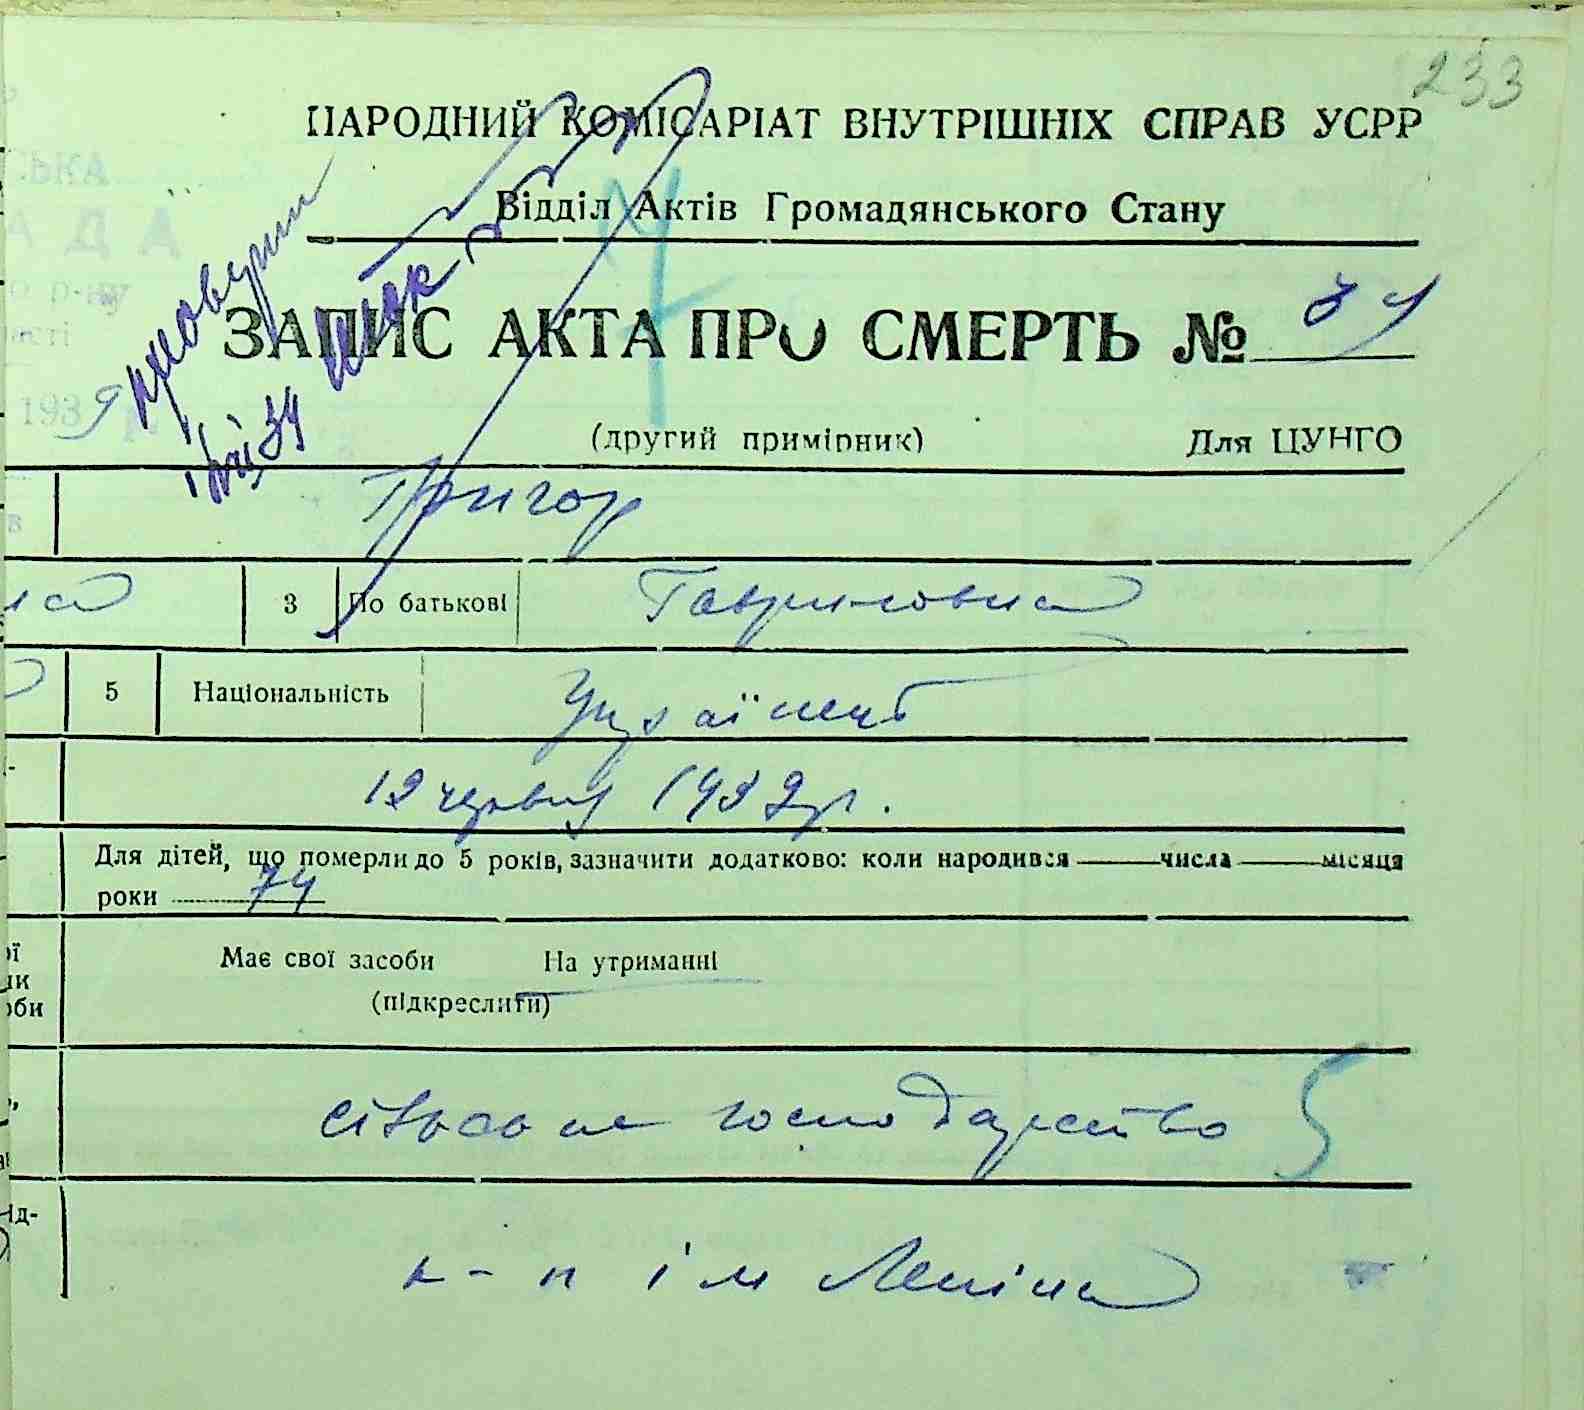 233
НАРОДНИЙ КОМІСАРІАТ ВНУТРІШНІХ СПРАВ УСРР
СЬКА
Відділ Актів Громадянського Стану
АДА
р-ну
ЗАПИС АКТА ПРО СМЕРТЬ №
193
(другий примірник) Для ЦУНГО
Григор
3 По батькові Гавриловна
5 Національність Українка
12 червня 1932 р.
Для дітей, що померли до 5 років, зазначити додатково: коли народився числа місяця
роки 74
Має свої засоби На утриманні
(підкреслити)
сільське господарство 5
к-п ім Леніна